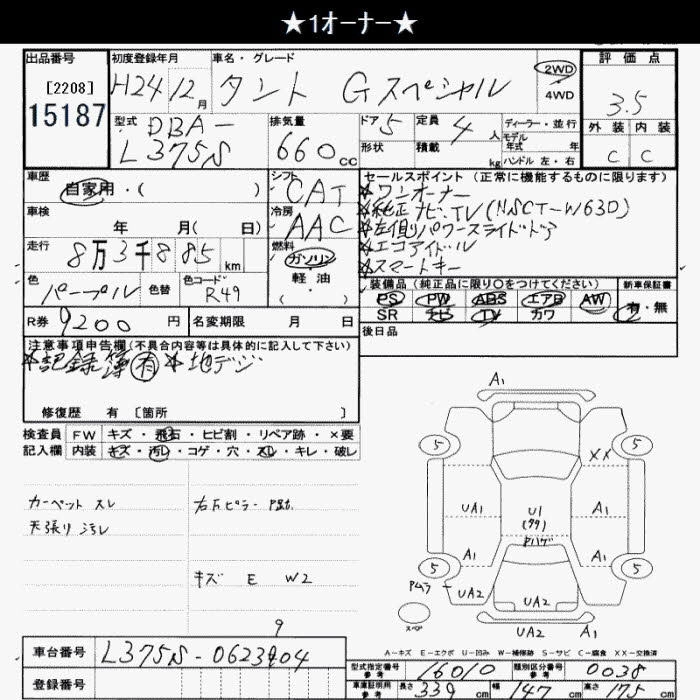 ★1オーナー★
出品番号
[2208]
15187
初度登録年月
H24 12月
車名・グレード
タント Gスペシャル
2WD
4WD
評価点
3.5
外装 内装
C C
型式
DBA-
L375S
排気量
660cc
ドア 5
形状
定員 4人
積載 kg
ディーラー・並行
モデル年式 年
ハンドル 左・右
車歴
自家用・( )
シフト
CAT
セールスポイント (正常に機能するものに限ります)
☆ワンオーナー
☆純正ナビ・TV(NSCT-W63D)
☆左側パワースライドドア
☆エコアイドル
☆スマートキー
車検
年 月( 日)
冷房
AAC
走行
8万3千885km
燃料
ガソリン
軽油
・( )
色
パープル
色替
色コード
R49
装備品 (純正品に限り○をつけてください)
PS PW ABS エアB AW
SR ナビ TV カワ
新車保証書
有・無
R券 9200円
名変期限 月 日
後日品
注意事項申告欄(不具合内容等は具体的に記入して下さい)
☆記録簿有 ☆地デジ
修復歴 有 [箇所 ]
検査員
記入欄
FW キズ・飛石・ヒビ割・リペア跡・×要
内装 キズ・汚レ・コゲ・穴・スレ・キレ・破レ
カーペット スレ
天張り汚レ
キズ E W2
A1
5
5
XX
UA1
U1
A1
Pハゲ
A1
A1
5
5
UA2
UA2
スペア
UA2
A1
A-キズ E-エクボ U-凹み W-補修跡 S-サビ C-腐食 XX-交換済
9
車台番号
L375S-0623904
登録番号
型式指定番号
参考
16010
類別区分番号
参考
0038
車庫証明用
参考
長さ 339cm
幅 147cm
高さ 175cm